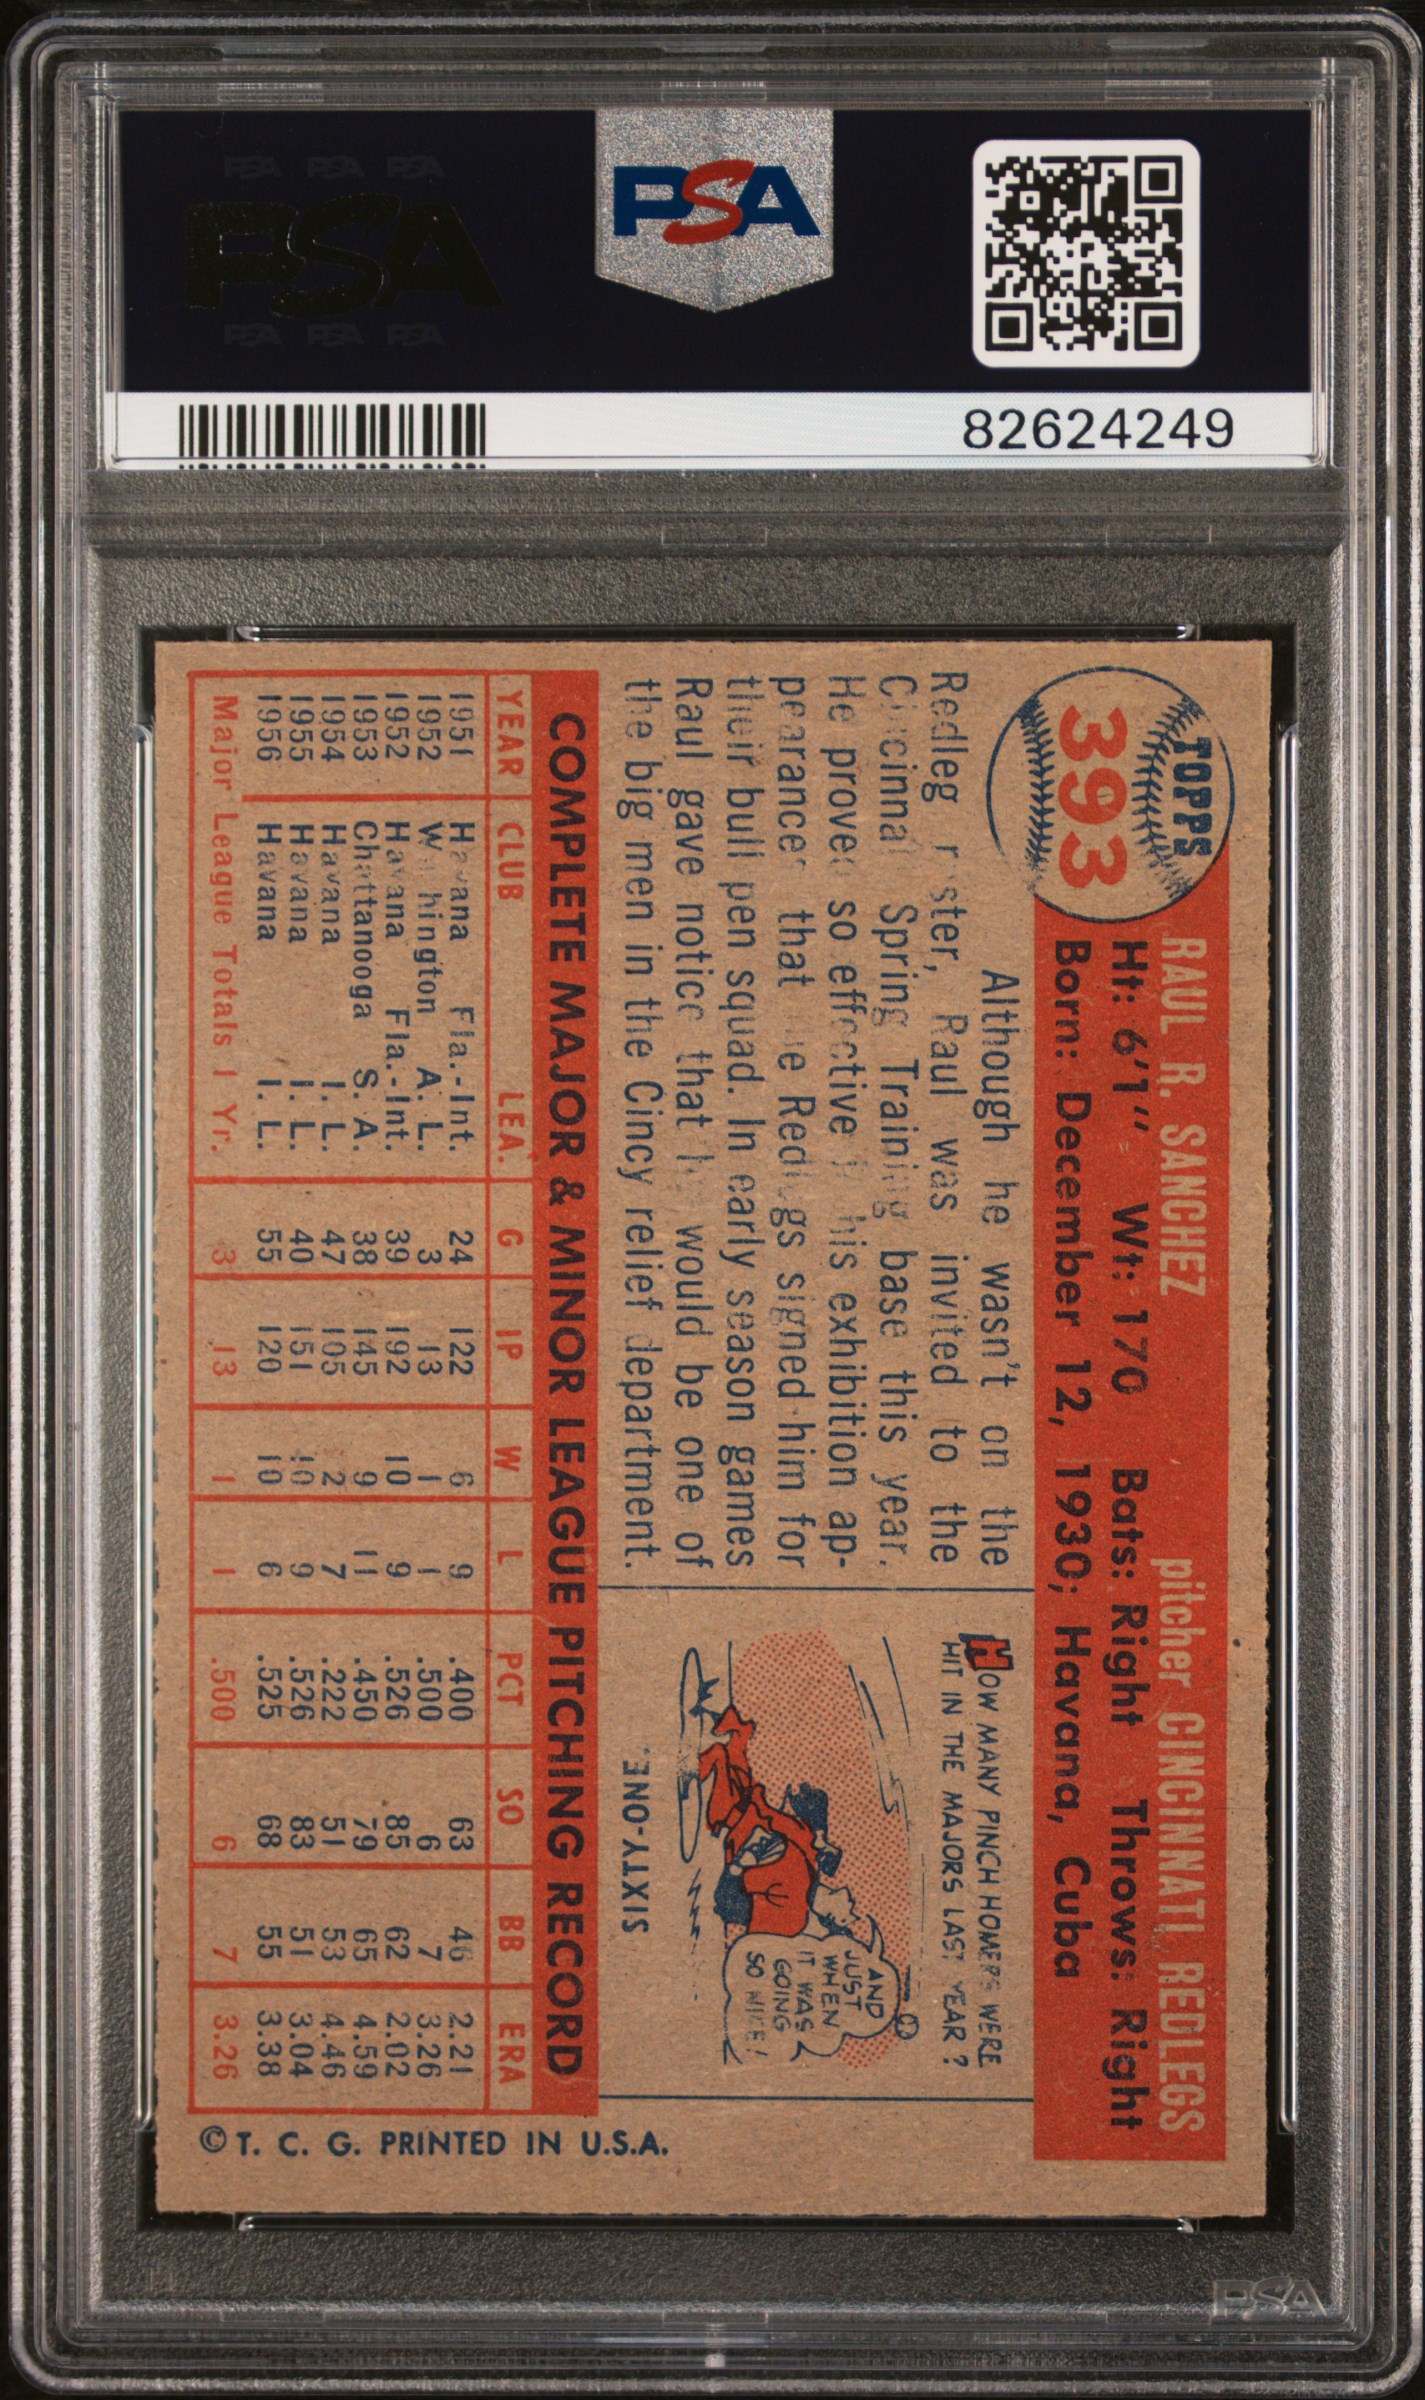 PSA PSA PSA
PSA
PSA PSA PSA
PSA
82624249
TOPPS
393
RAUL R. SANCHEZ pitcher CINCINNATI REDLEGS
Ht: 6'1" Wt: 170 Bats: Right Throws: Right
Born: December 12, 1930; Havana, Cuba
Although he wasn't on the
Redleg r ster, Raul was invited to the
C cinna Spring Training base this year.
He prove so effective his exhibition ap-
pearance that e Red gs signed him for
their bull pen squad. In early season games
Raul gave notice that would be one of
the big men in the Cincy relief department.
HOW MANY PINCH HOMERS WERE
HIT IN THE MAJORS LAST YEAR?
AND
JUST
WHEN
IT WAS
GOING
SO NICE!
SIXTY-ONE.
COMPLETE MAJOR & MINOR LEAGUE PITCHING RECORD
YEAR CLUB LEA. G IP W L PCT SO BB ERA
1951 Havana Fla.-Int. 24 122 6 9 .400 63 46 2.21
1952 Washington A. L. 3 13 1 1 .500 6 7 3.26
1952 Havana Fla.-Int. 39 192 10 9 .526 85 62 2.02
1953 Chattanooga S. A. 38 145 9 11 .450 79 65 4.59
1954 Havana I. L. 47 105 2 7 .222 51 53 4.46
1955 Havana I. L. 40 151 10 9 .526 83 51 3.04
1956 Havana I. L. 55 120 10 6 .525 68 55 3.38
Major League Totals 1 Yr. 3 13 1 1 .500 6 7 3.26
© T. C. G. PRINTED IN U.S.A.
PSA